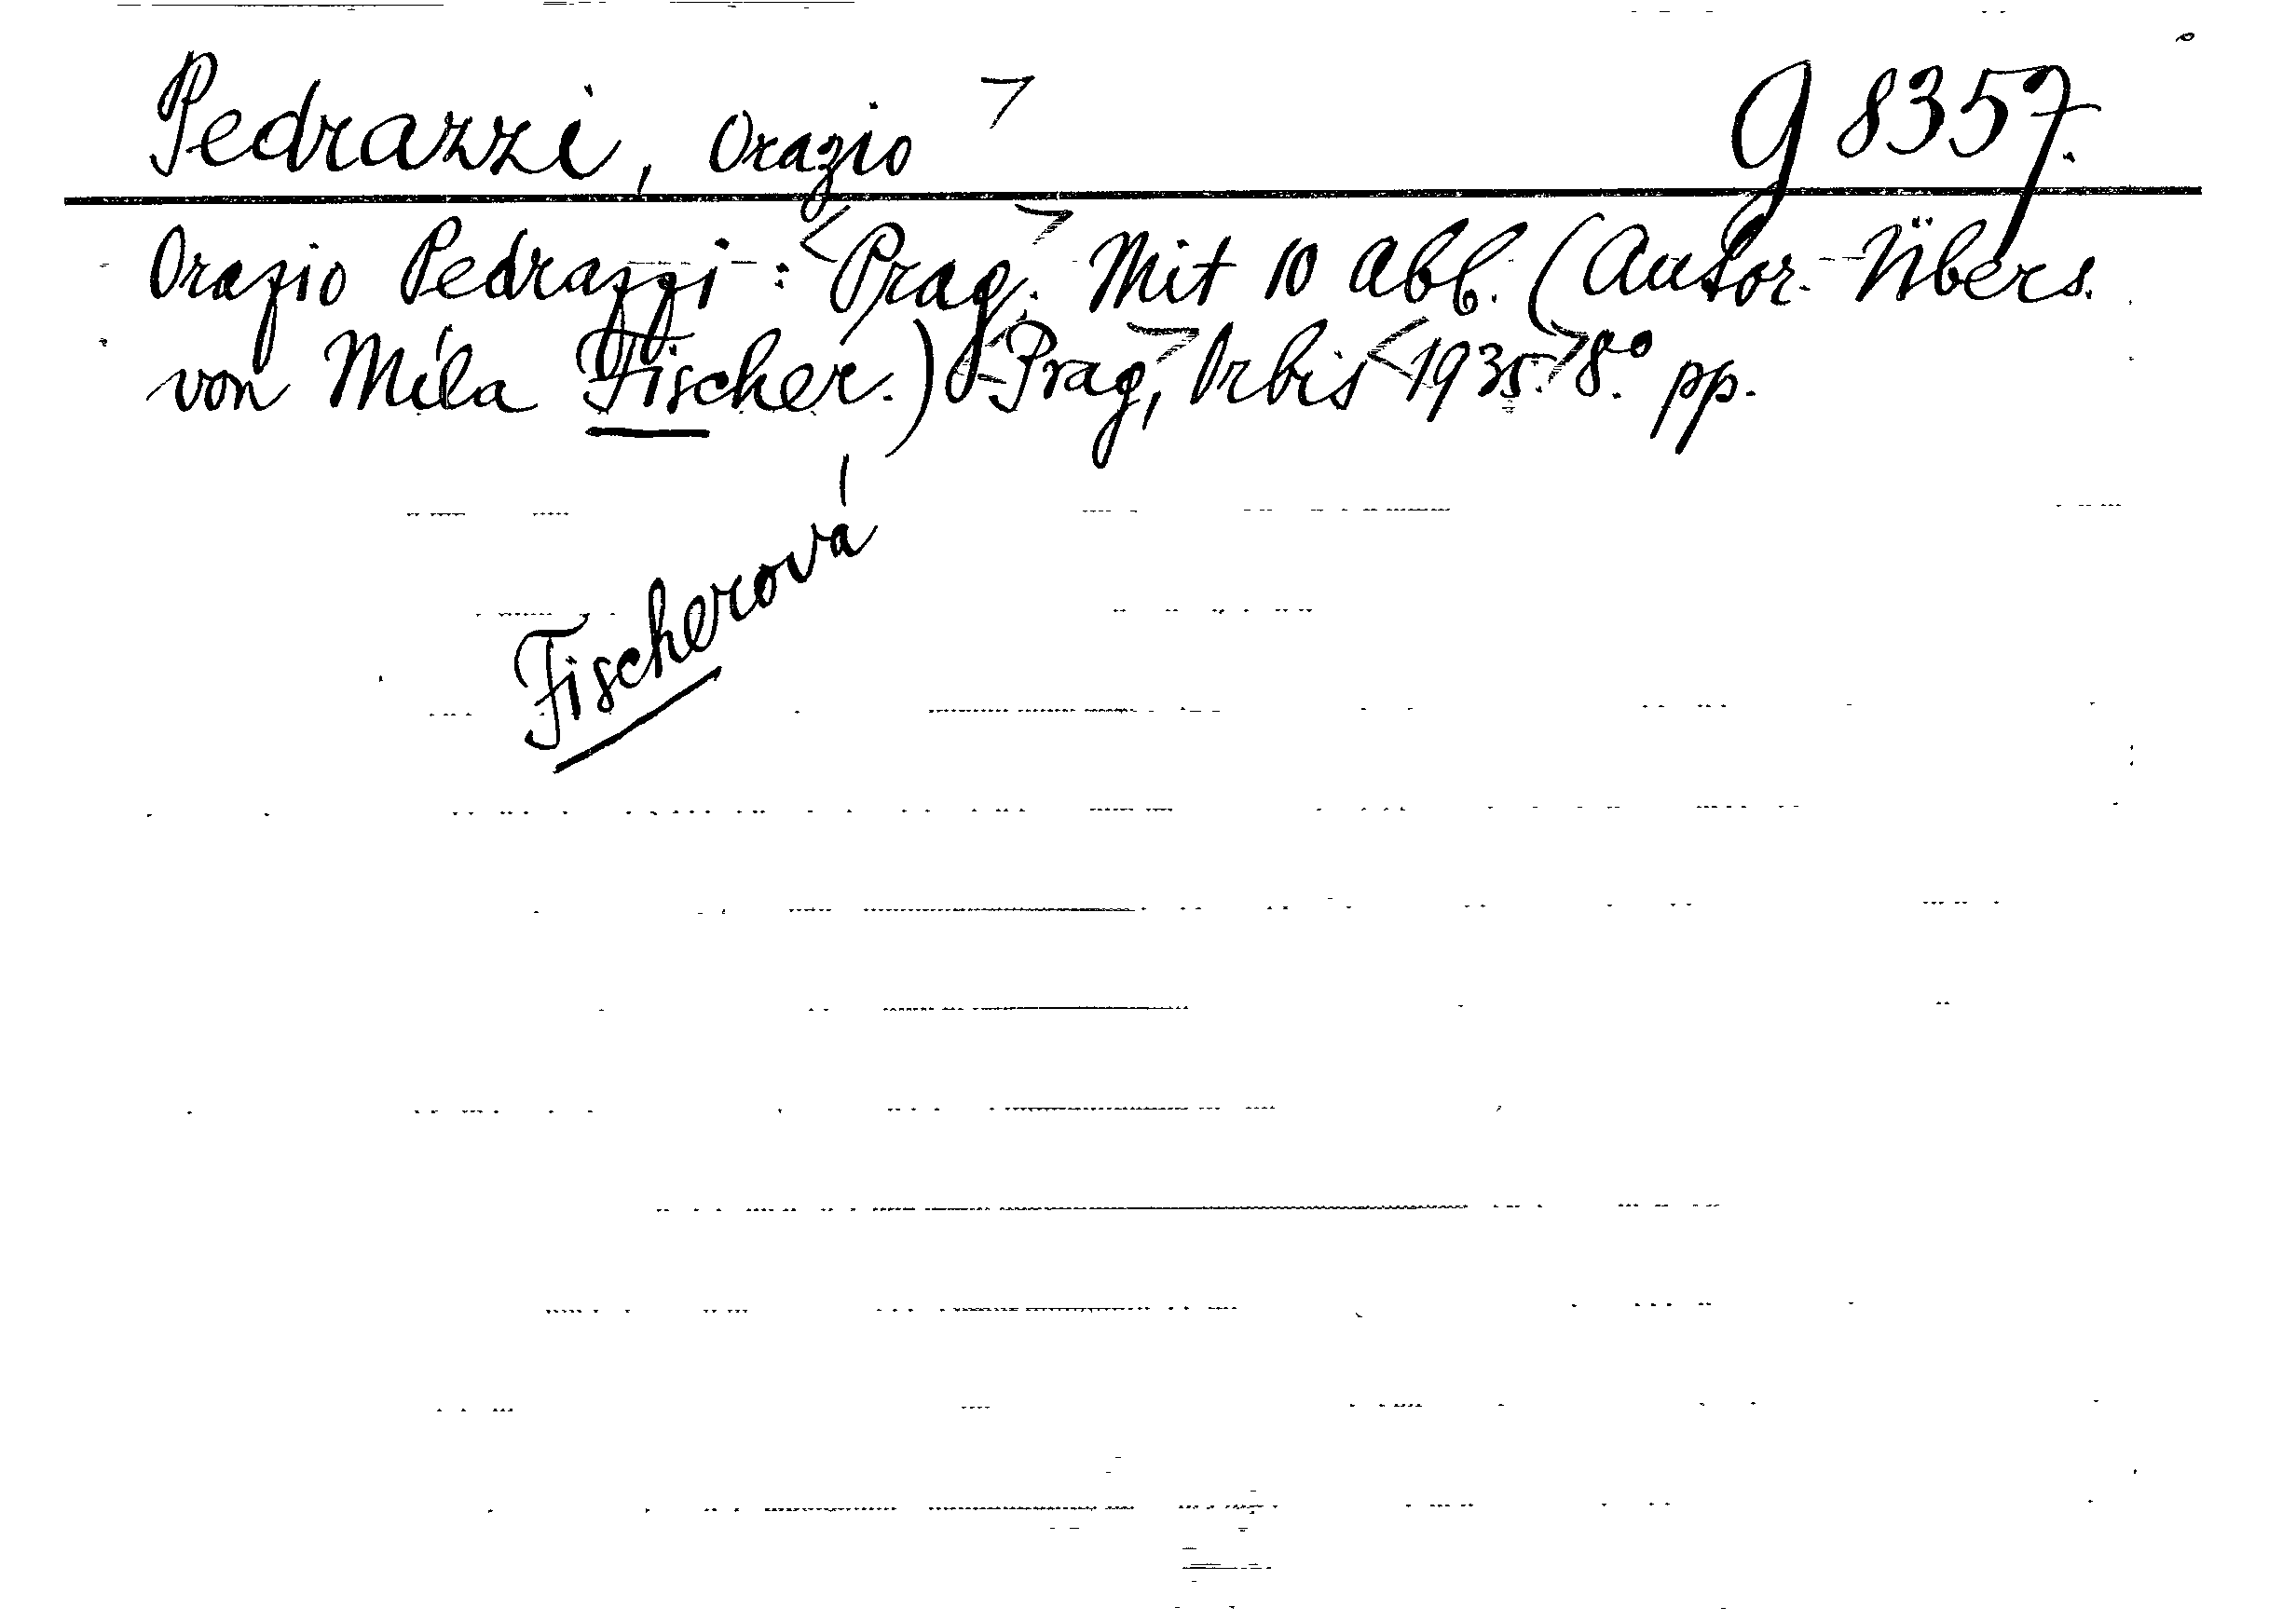 Pedrazzi, Orazio > G 8357.
Orazio Pedrazzi: <Prag.> Mit 10 Abb. (Autor.-Übers.
von Míla Fischer.) Prag, Orbis <1935.> 8.° pp.
Fischerová